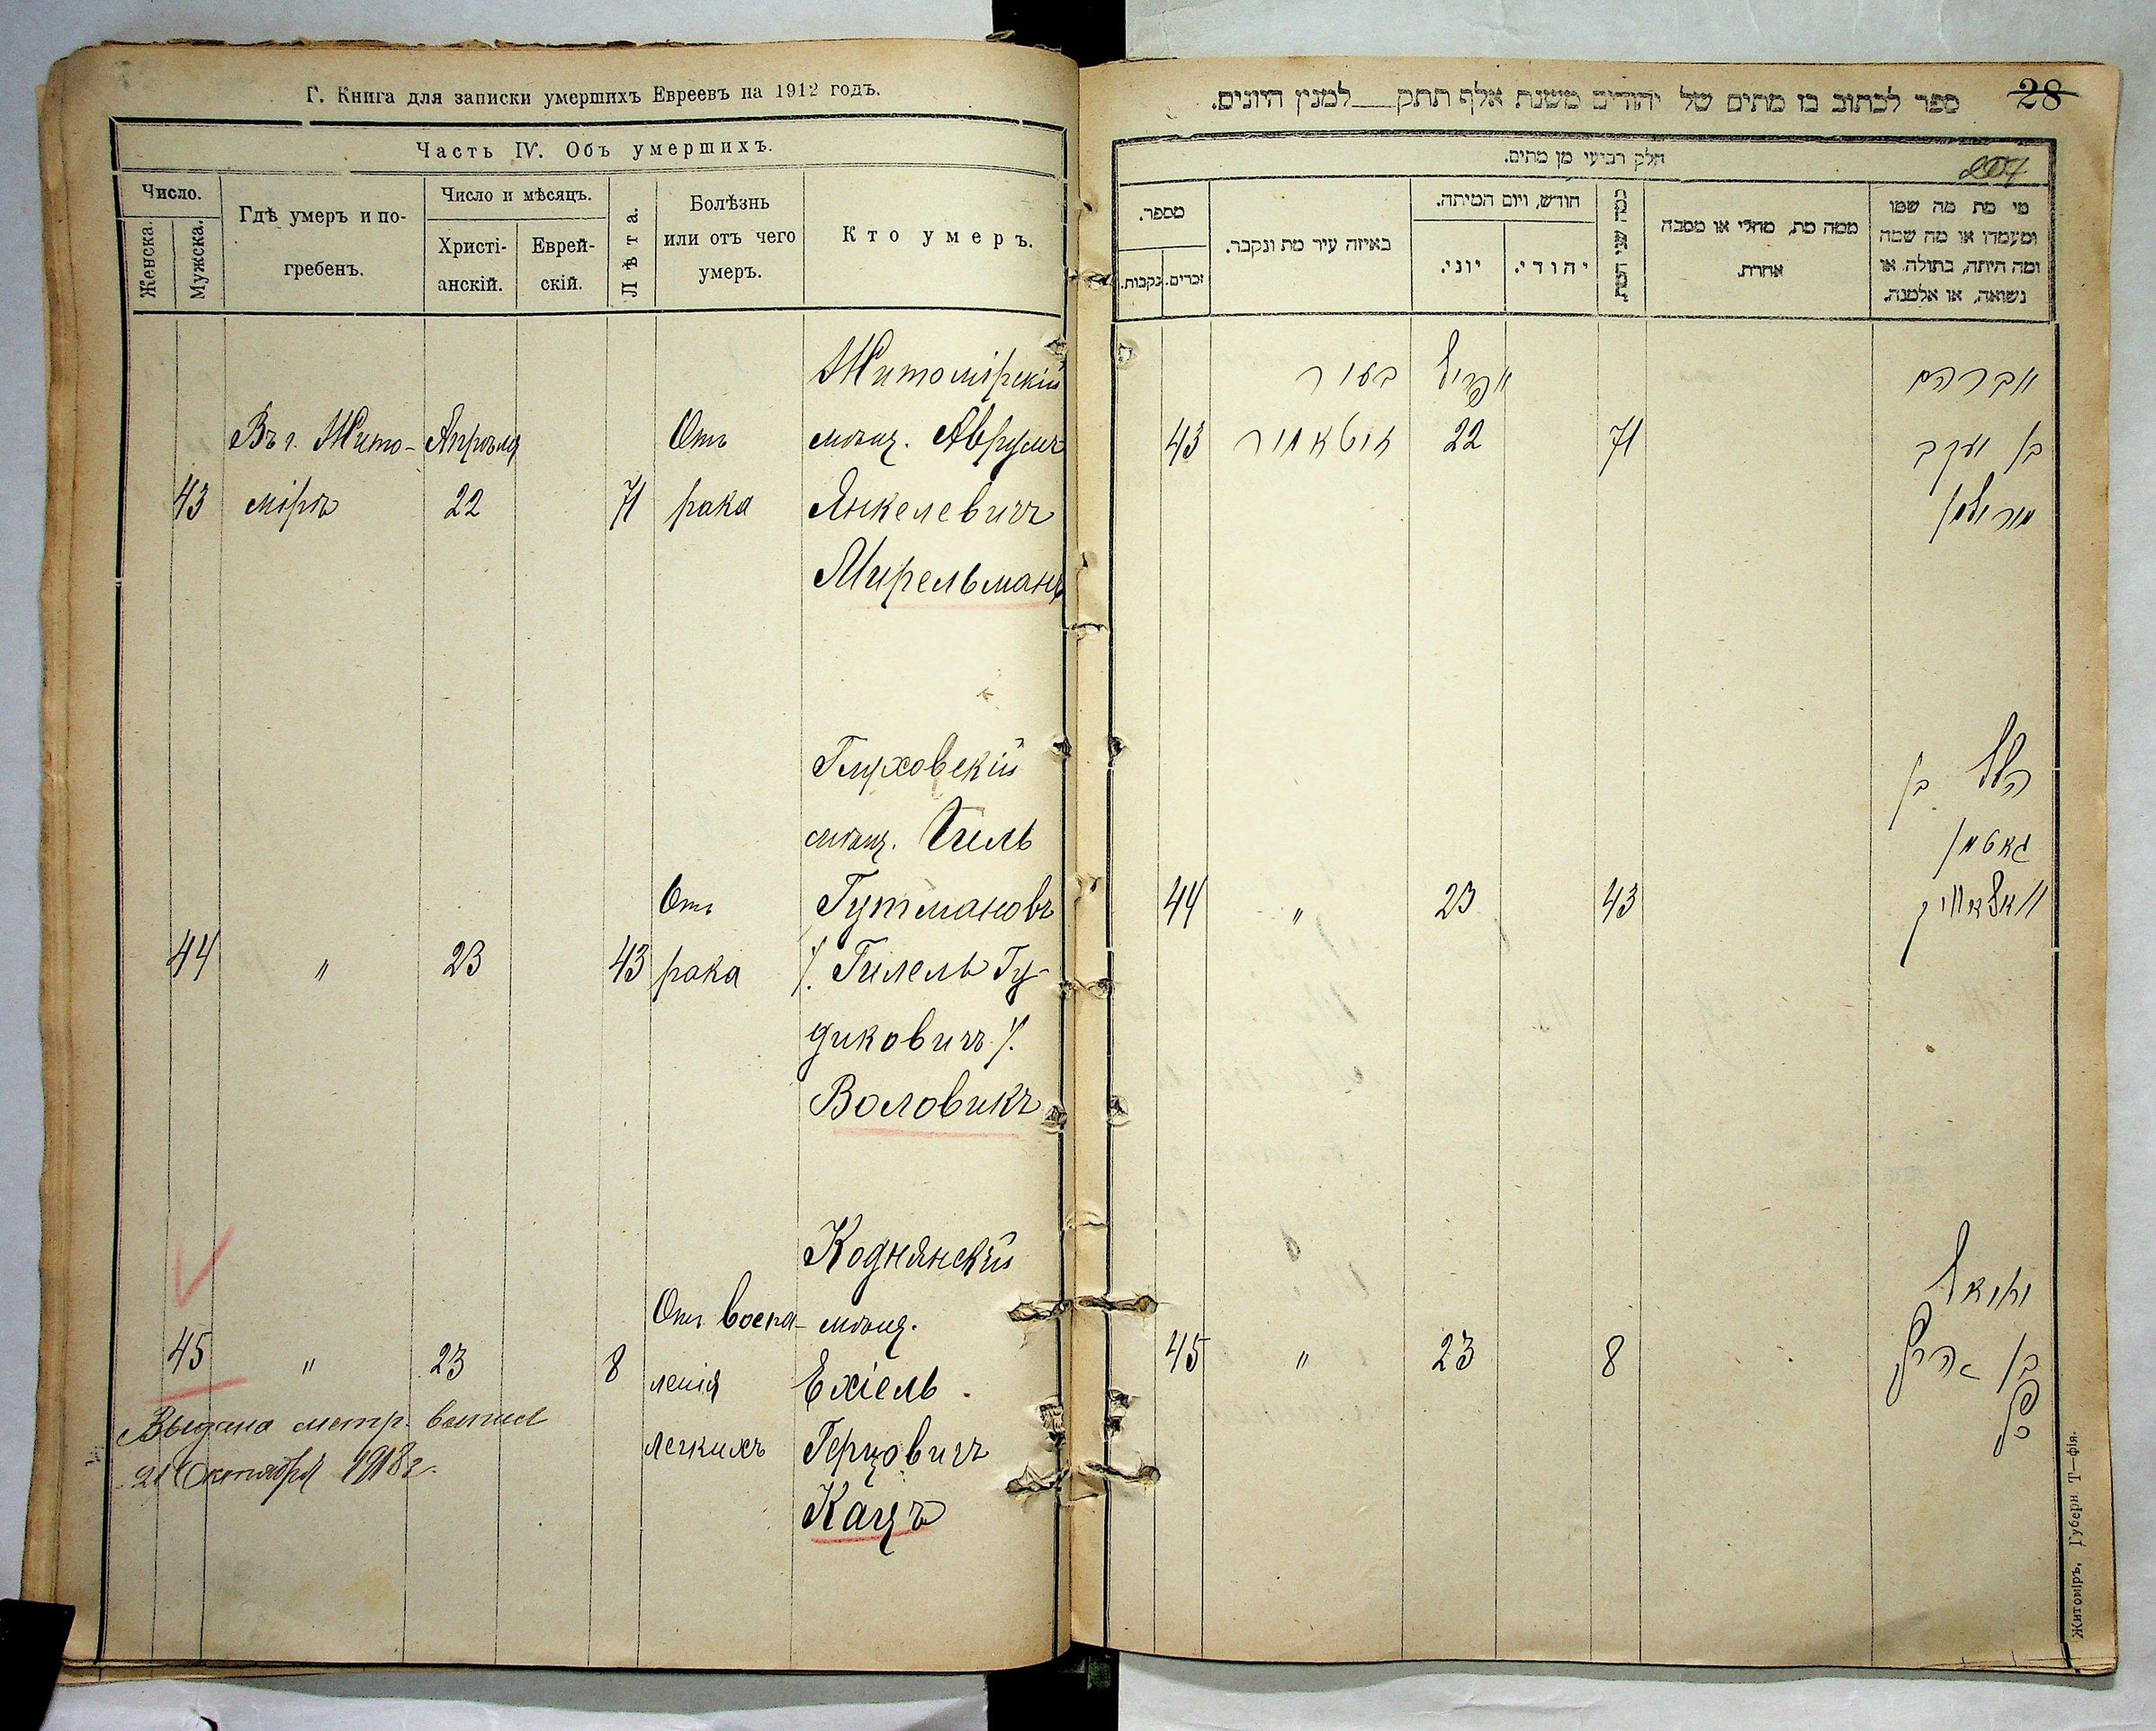 Г. Книга для записки умершихъ Евреевъ на 1912 годъ.
Часть IV. Объ умершихъ.
Число.
Женска.
Мужска.
Гдѣ умеръ и по-
гребенъ.
Число и мѣсяцъ.
Христі-
анскій.
Еврей-
скій.
Лѣта.
Болѣзнь
или отъ чего
умеръ.
Кто умеръ.
43
Въ г. Жито-
мірѣ
Апрѣля
22
71
Отъ
рака
Житомірскій
мѣщ. Аврумъ
Янкелевичъ
Мирельманъ
44
"
23
43
Отъ
рака
Глуховскій
мѣщ.
Гутмановъ
/. Гилель Гу-
диковичъ /.
Воловикъ
45
"
23
8
Отъ воспа-
ленія
легкихъ
Коднянскій
мѣщ.
Ехіель
Герцовичъ
Кацъ
Выдана метр. выпись
21 Октября 1918 г.
28
ספר לכתוב בו מתים של יהודים משנת אלף תתק למנין היונים.
207
חלק רביעי מן מתים.
מספר.
נקבות.
זכרים.
באיזה עיר מת ונקבר.
חודש, ויום המיתה.
יוני.
יהודי.
כמה שני המת.
ממה מת, מחלי או מסבה
אחרת.
מי מת מה שמו
ומעמדו או מה שמה
ומה היתה, בתולה או
נשואה, או אלמנה.
43
בעיר
זיטאמיר
אפריל
22
71
אברהם
בן יעקב
מירילמן
44
"
23
43
הלל בן
גאטמן
וואלאוויק
45
"
23
8
יחיאל
בן
כץ
Житоміръ, Губерн Т—фія.